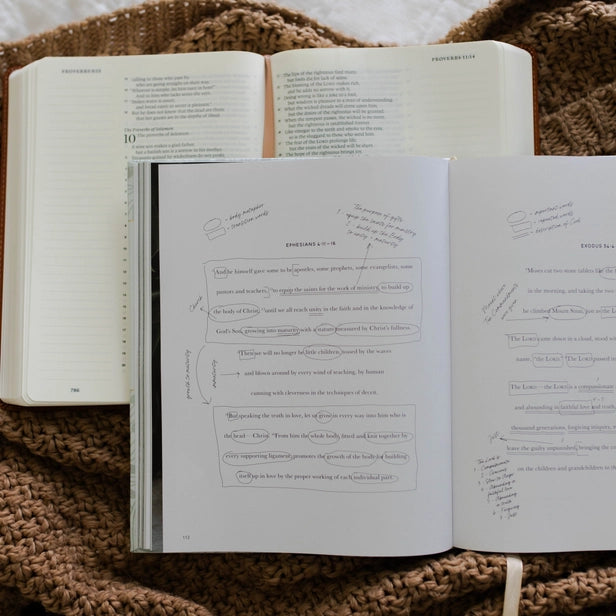 PROVERBS 9:13
calling to those who pass by
who are going straight on their way
"Whoever is simple, let him turn in here!"
And to him who lacks sense she says,
"Stolen water is sweet,
and bread eaten in secret is pleasant."
But he does not know that the dead are there,
that her guests are in the depths of Sheol.
The Proverbs of Solomon
10 The proverbs of Solomon.
A wise son makes a glad father,
but a foolish son is a sorrow to his mother.
786
PROVERBS 11:14
The lips of the righteous feed many,
but fools die for lack of sense.
The blessing of the LORD makes rich,
and he adds no sorrow with it.
Doing wrong is like a joke to a fool,
but wisdom is pleasure to a man of understanding.
What the wicked dreads will come upon him,
but the desire of the righteous will be granted.
When the tempest passes, the wicked is no more,
but the righteous is established forever.
Like vinegar to the teeth and smoke to the eyes,
so is the sluggard to those who send him.
The fear of the LORD prolongs life,
but the years of the wicked will be short.
The hope of the righteous brings joy,
- body metaphor
- transition words
The purpose of gifts
1. equip the saints for ministry
2. build up the Body
to unity + maturity
EPHESIANS 4:11–16
And he himself gave some to be apostles, some prophets, some evangelists, some
pastors and teachers, to equip the saints for the work of ministry, to build up
the body of Christ, until we all reach unity in the faith and in the knowledge of
God's Son, growing into maturity with a stature measured by Christ's fullness.
Church
Then we will no longer be little children, tossed by the waves
and blown around by every wind of teaching, by human
cunning with cleverness in the techniques of deceit.
growth to maturity
immaturity
But speaking the truth in love, let us grow in every way into him who is
the head—Christ. From him the whole body, fitted and knit together by
every supporting ligament, promotes the growth of the body for building
itself up in love by the proper working of each individual part.
112
- important words
- repeated words
- description of God
EXODUS 34:4
Moses cut two stone tablets like the
in the morning, and taking the two
he climbed Mount Sinai, just as the L
The LORD came down in a cloud, stood with
name, "the LORD." The LORD passed in
The LORD—the LORD is a compassionate
and abounding in faithful love and truth,
thousand generations, forgiving iniquity, r
leave the guilty unpunished, bringing the
on the children and grandchildren to th
The Lord is
1. Compassionate
2. Gracious
3. Slow to Anger
4. Abounding in
faithful love
5. Abounding
in truth
6. Forgiving
7. Just